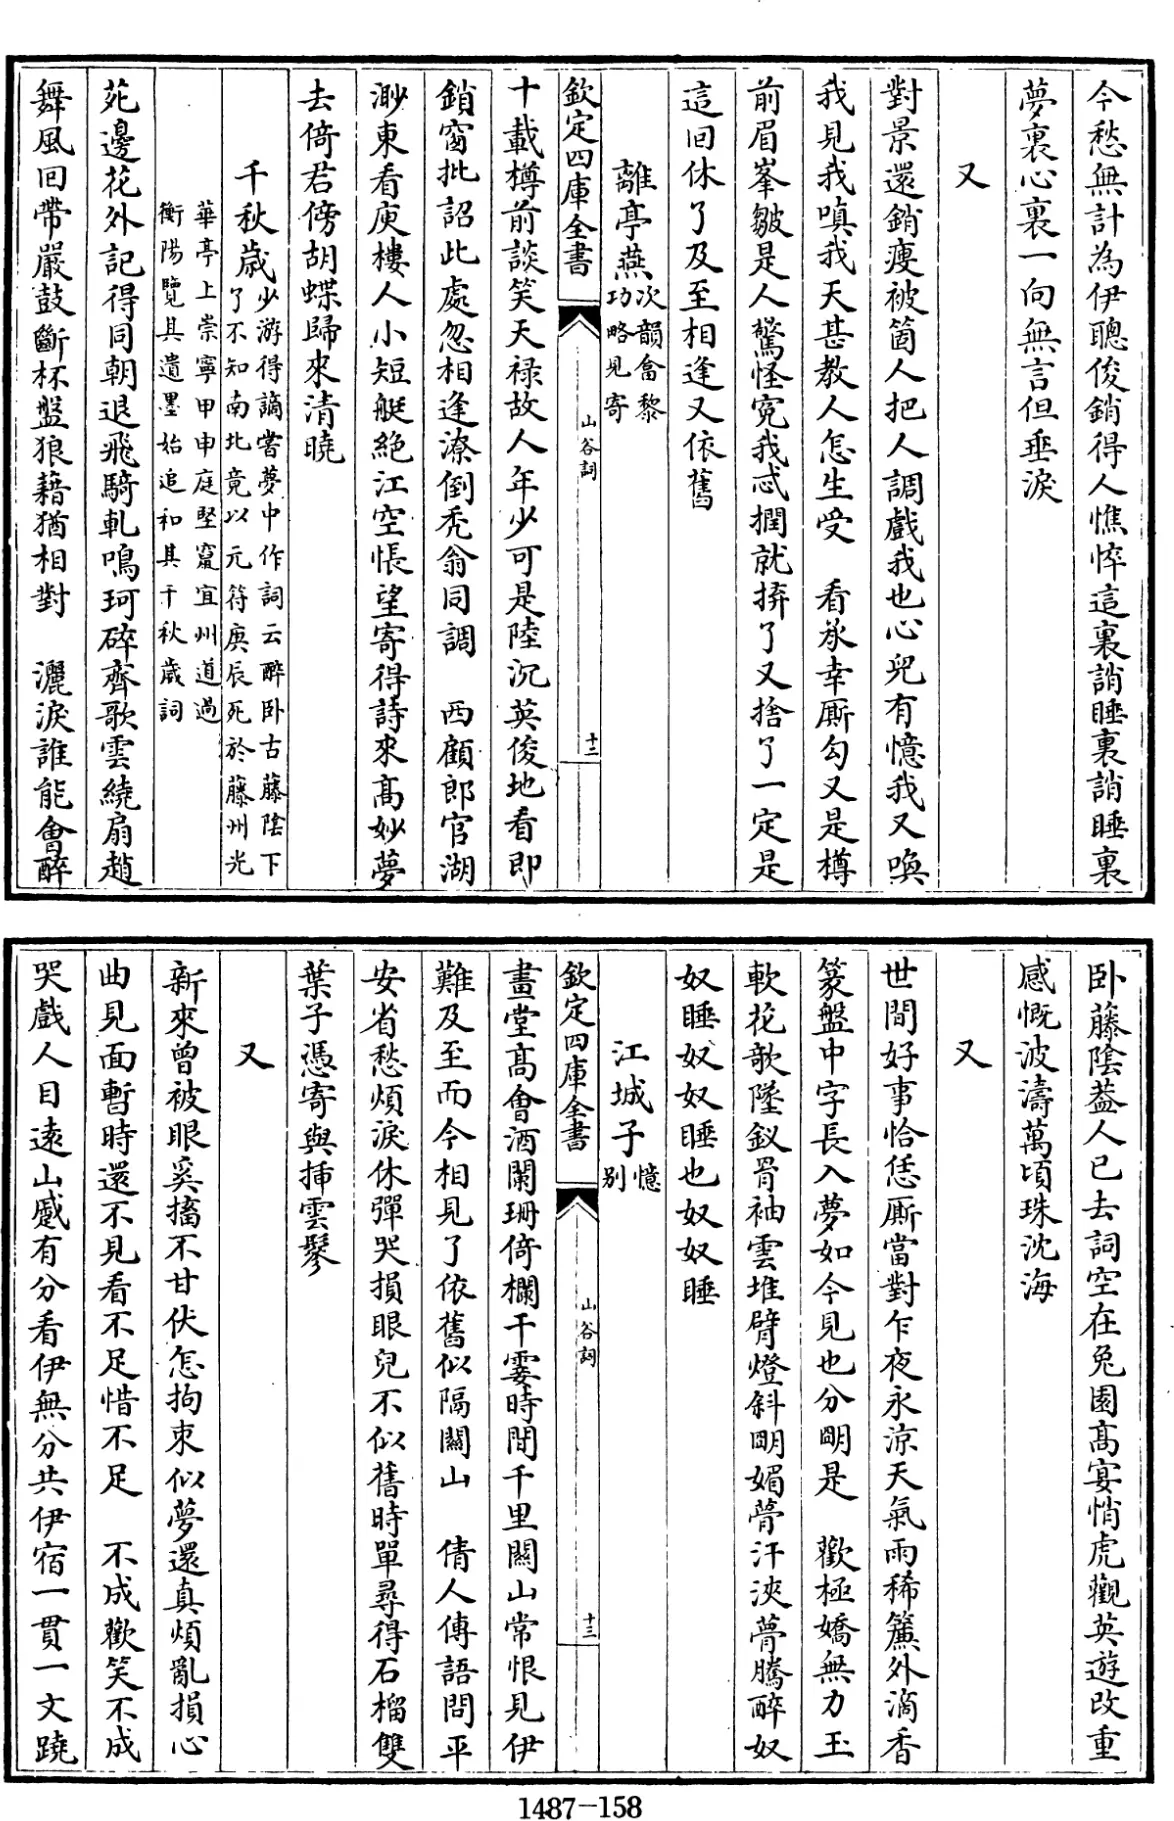 今愁無計為伊聰俊銷得人憔悴這裏誚睡裏誚睡裏
夢裏心裏一向無言但垂淚
又
對景還銷瘦被箇人把人調戲我也心兒有憶我又喚
我見我嗔我天甚教人怎生受　看承幸厮勾又是樽
前眉峯皺是人驚怪寃我忒撋就拚了又捨了一定是
這回休了及至相逢又依舊
離亭燕次韻畣黎功略見寄
欽定四庫全書
山谷詞
十二
十載樽前談笑天禄故人年少可是陸沉英俊地看即
鎖窗批詔此處忽相逢潦倒秃翁同調　西顧郎官湖
渺東看庾樓人小短艇絶江空悵望寄得詩來高妙夢
去倚君傍胡蝶歸來清曉
千秋歳少游得謫嘗夢中作詞云醉卧古藤陰下
了不知南北竟以元符庚辰死於藤州光
華亭上崇寧甲申庭堅竄宜州道過
衡陽覽其遺墨始追和其千秋歳詞
苑邊花外記得同朝退飛騎軋鳴珂碎齊歌雲繞扇趙
舞風回帶嚴鼓斷杯盤狼藉猶相對　灑淚誰能會醉
卧藤陰葢人已去詞空在兔園高宴悄虎觀英遊改重
感慨波濤萬頃珠沈海
又
世間好事恰恁厮當對乍夜永涼天氣雨稀簾外滴香
篆盤中字長入夢如今見也分明是　歡極嬌無力玉
軟花欹墜釵罥袖雲堆臂燈斜明媚眢汗浹瞢騰醉奴
奴睡奴奴睡也奴奴睡
江城子憶别
欽定四庫全書
山谷詞
十三
畫堂高會酒闌珊倚欄干霎時間千里闗山常恨見伊
難及至而今相見了依舊似隔闗山　倩人傳語問平
安省愁煩淚休彈哭損眼兒不似舊時單尋得石榴雙
葉子憑寄與揷雲鬟
又
新來曾被眼奚搐不甘伏怎拘束似夢還真煩亂損心
曲見面暫時還不見看不足惜不足　不成歡笑不成
哭戲人目遠山蹙有分看伊無分共伊宿一貫一文蹺
1487-158